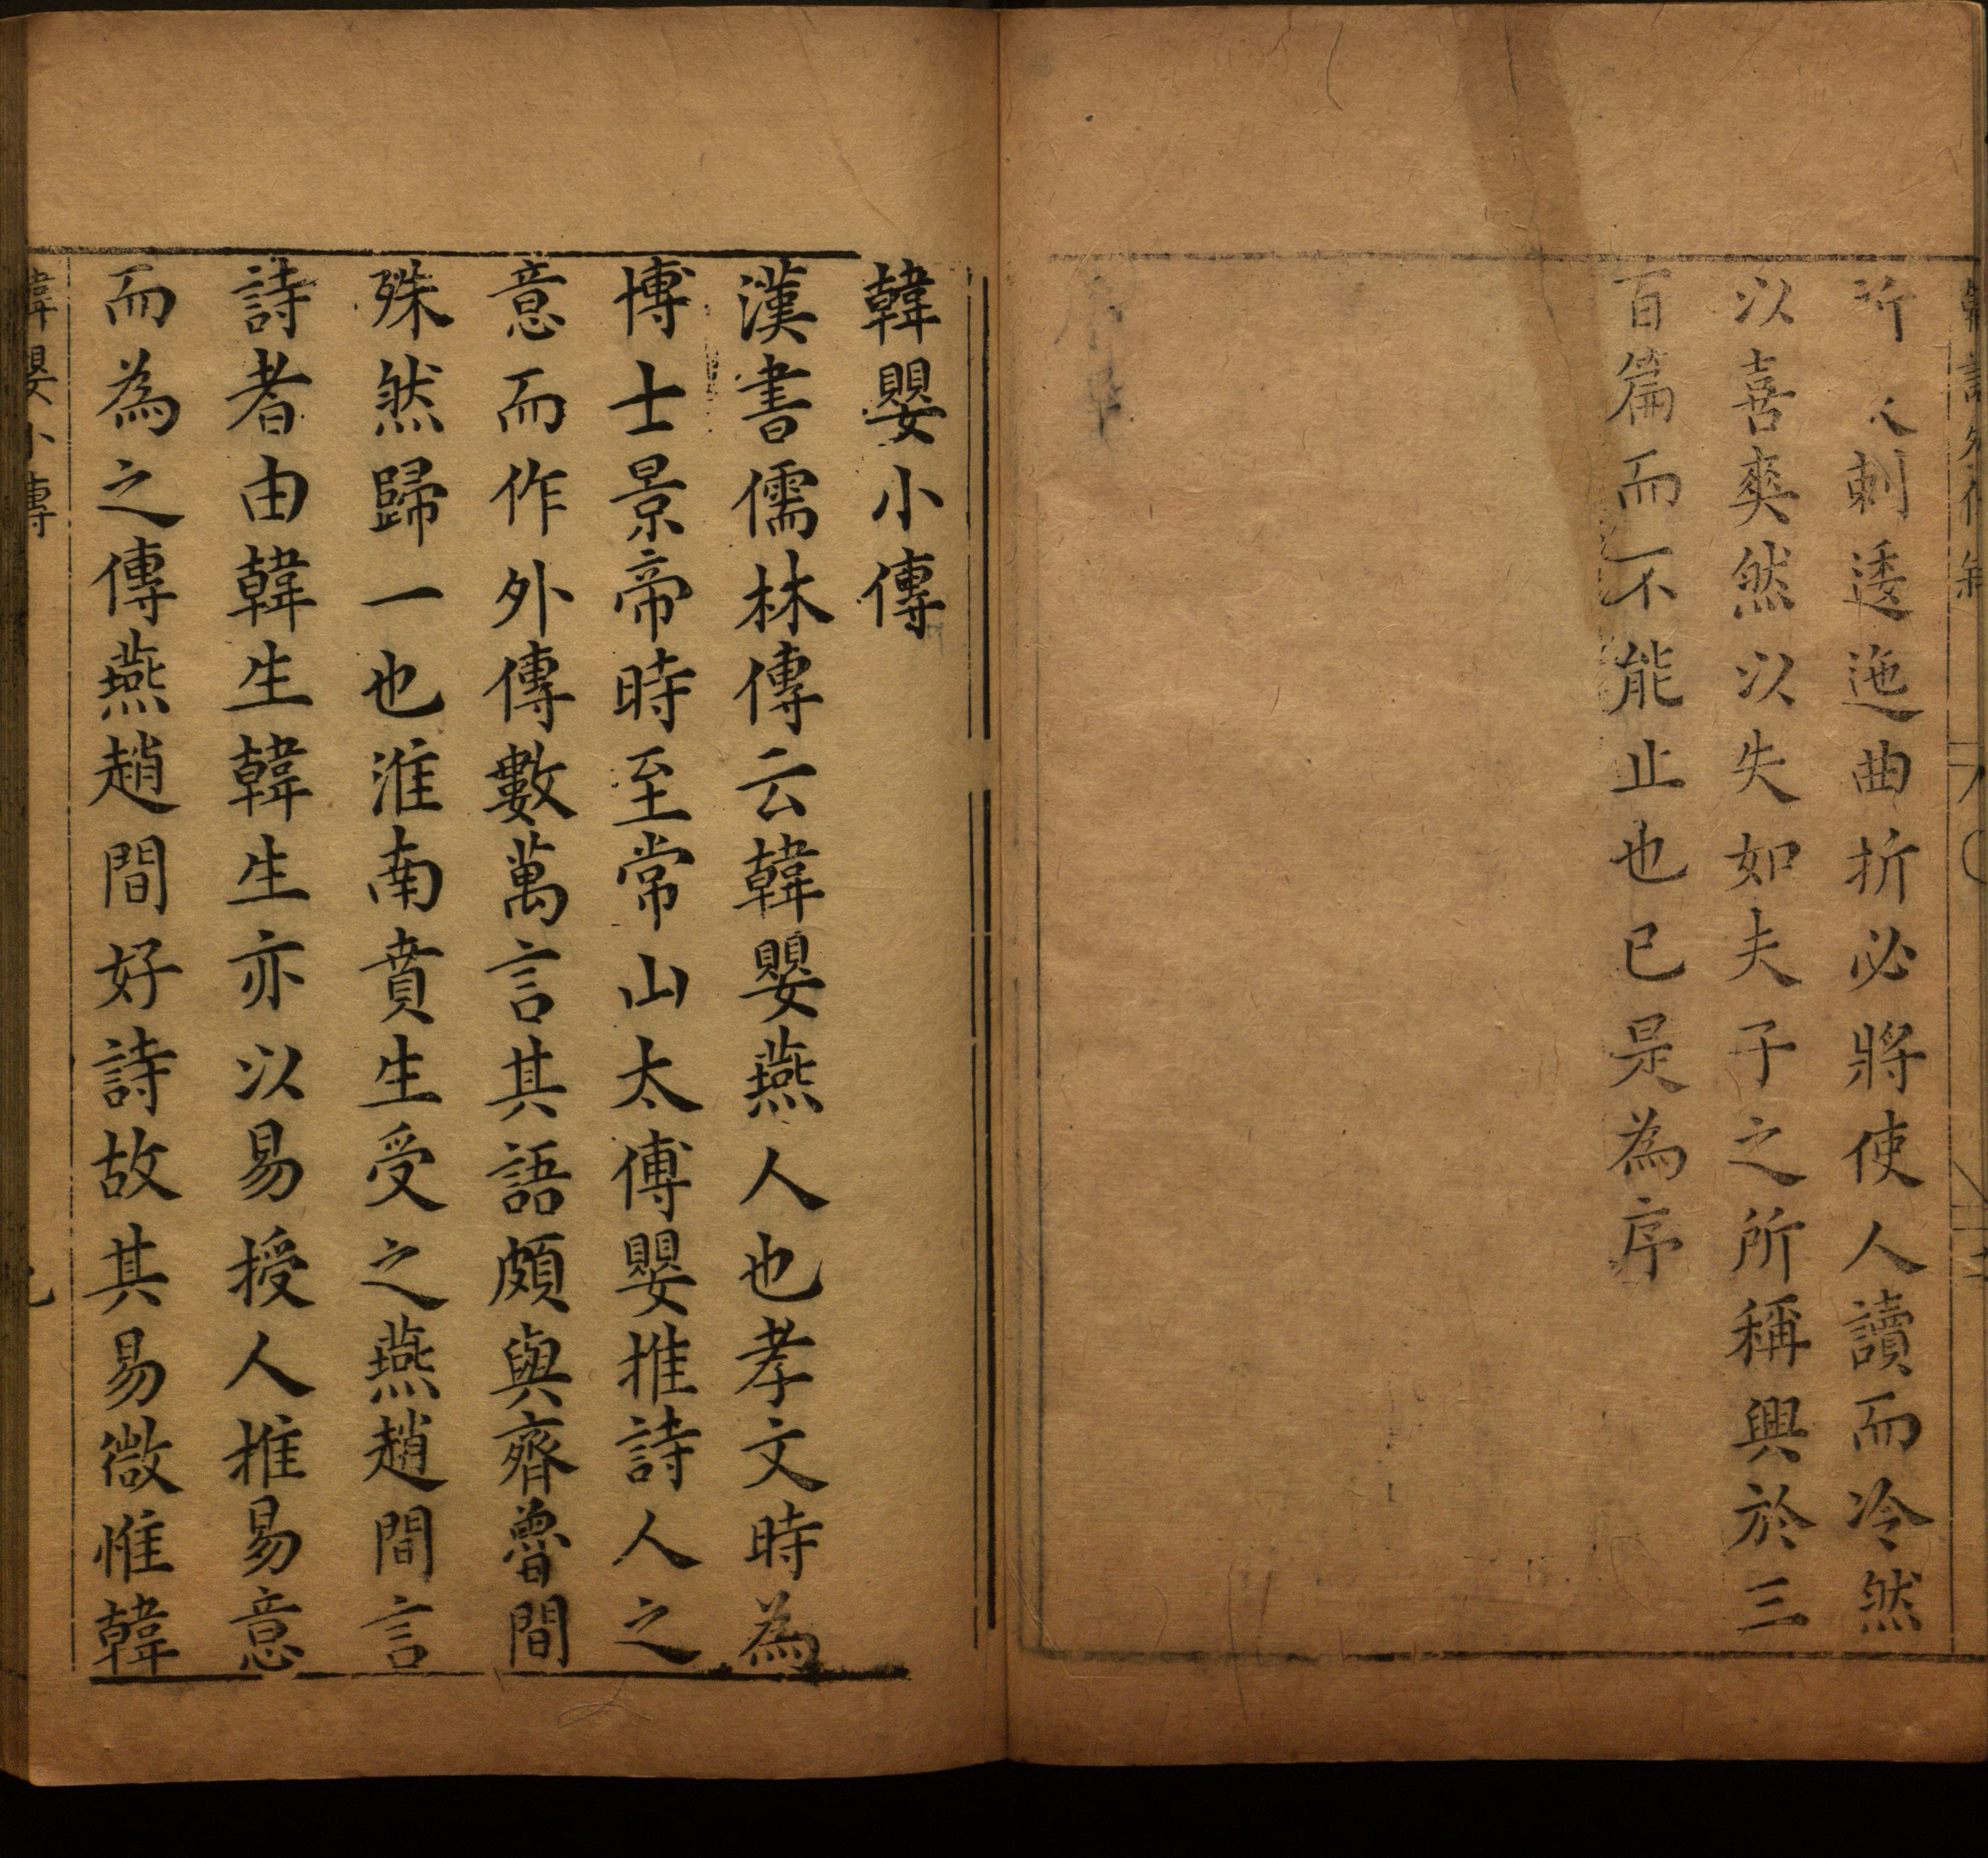 以刺逶迤曲折必將使人讀而冷然
以喜爽然以失如夫子之所稱興於三
百篇而不能止也已是為序
韓嬰小傳
漢書儒林傳云韓嬰燕人也孝文時為
博士景帝時至常山太傅嬰推詩人之
意而作外傳數萬言其語頗與齊魯間
殊然歸一也淮南賁生受之燕趙間言
詩者由韓生韓生亦以易授人推易意
而為之傳燕趙間好詩故其易微惟韓
韓嬰小傳